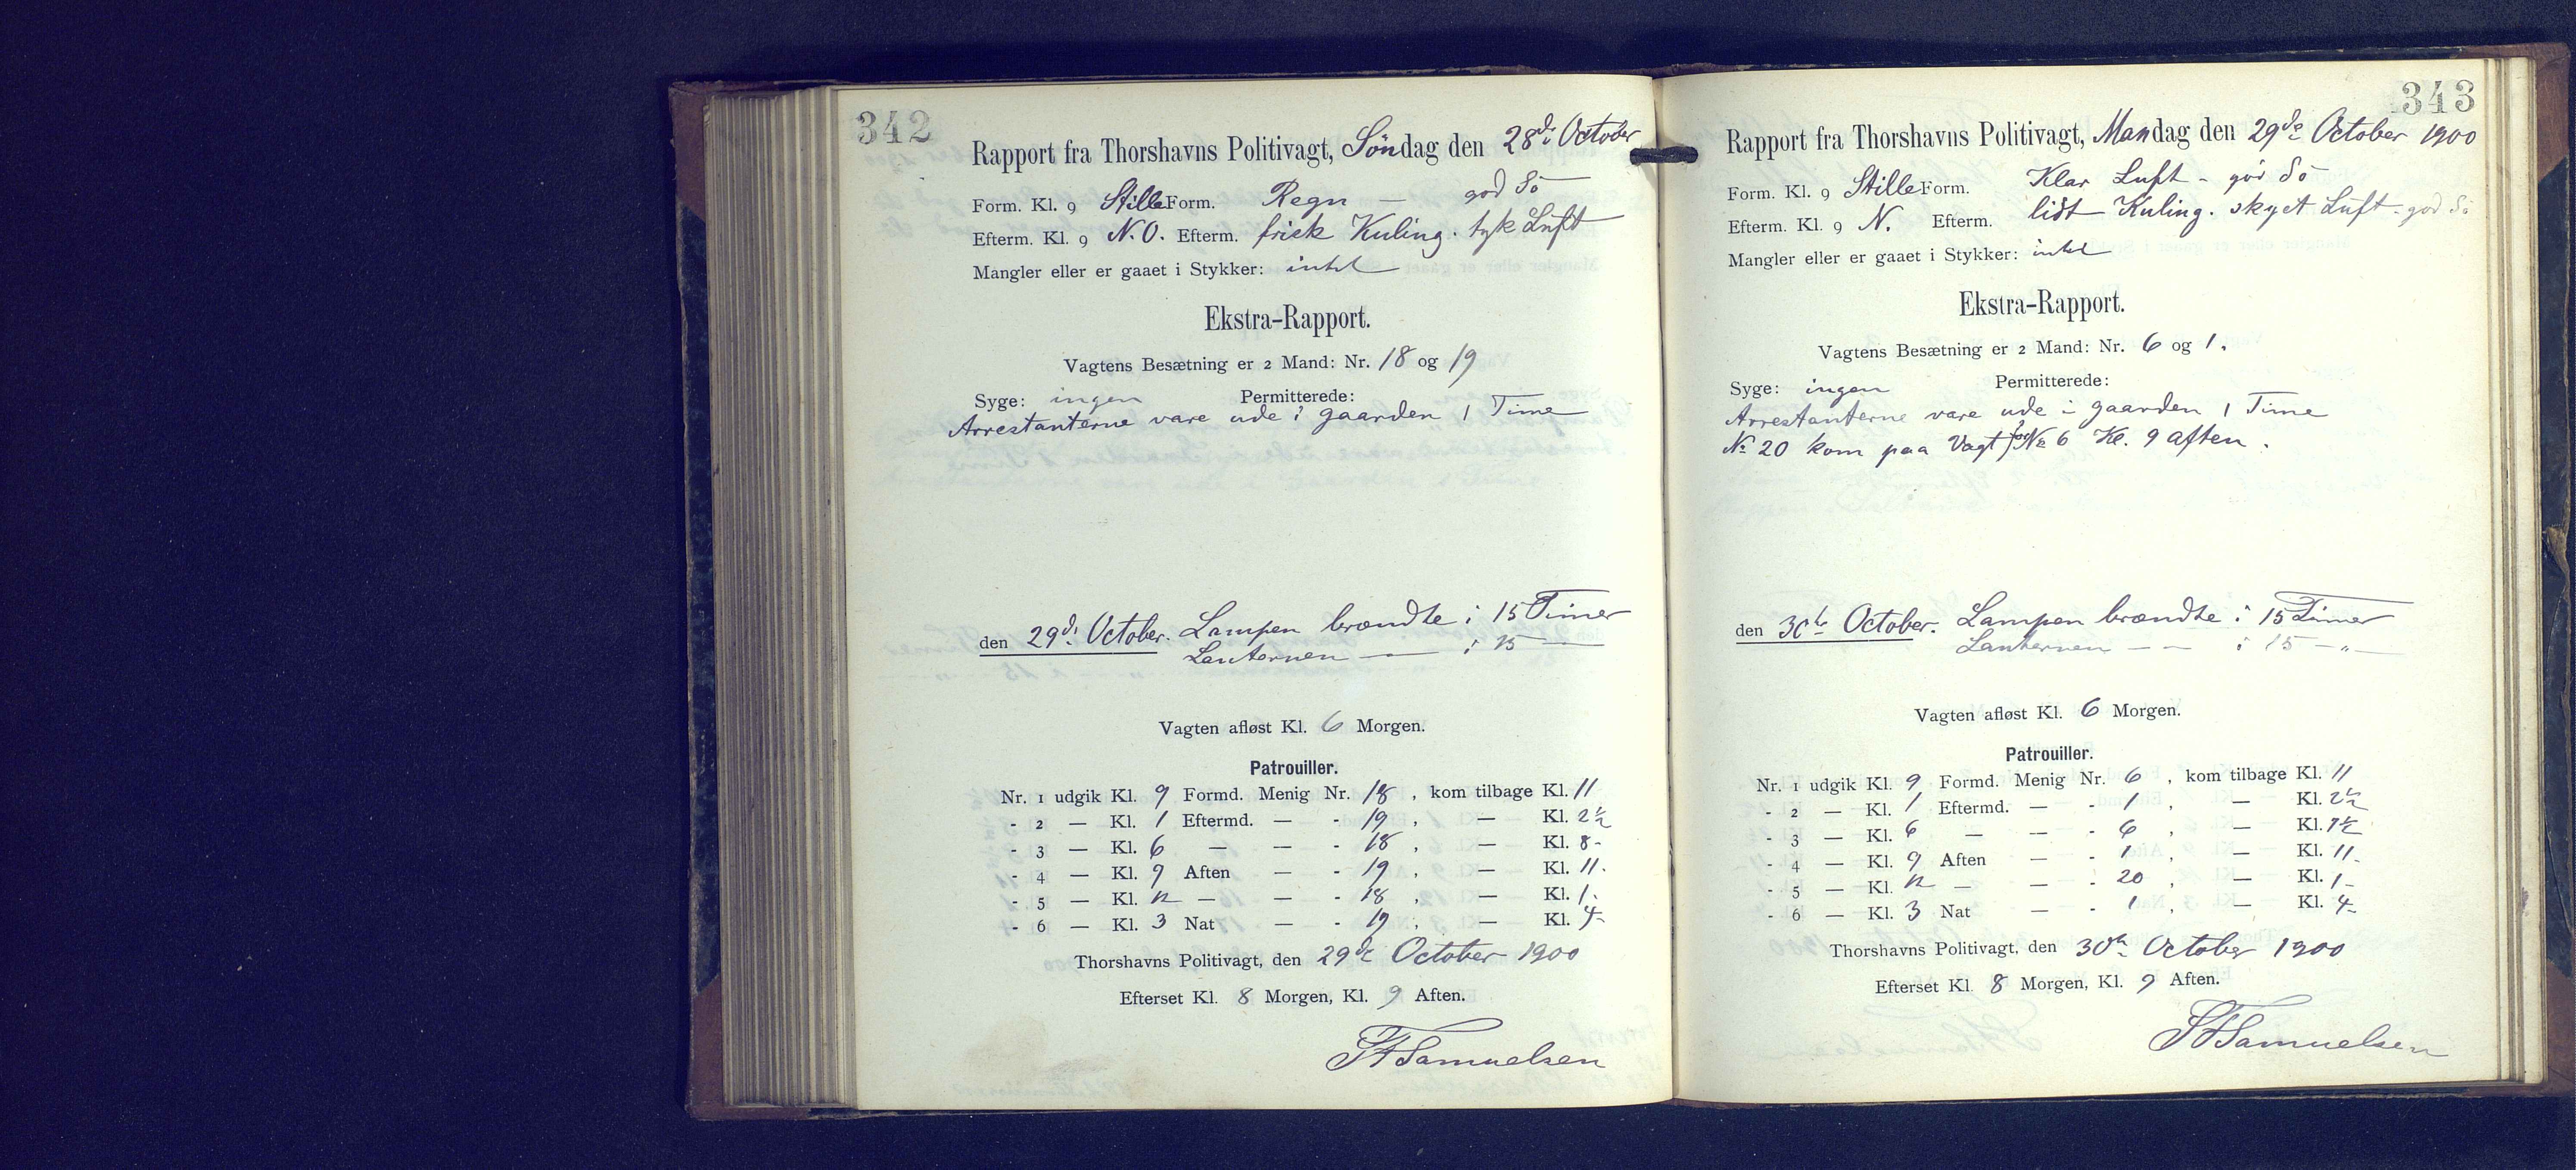 342
Rapport fra Thorshavns Politivagt, Søndag den 28de October
Form. Kl. 9 Stille Form. Regn — god Sö
Efterm. Kl. 9 N.O. Efterm. frisk Kuling. tyk Luft
Mangler eller er gaaet i Stykker: intet
Ekstra-Rapport.
Vagtens Besætning er 2 Mand: Nr. 18 og 19
Syge: ingen Permitterede:
Arrestanterne vare ude i gaarden 1 Time
den 29de October. Lampen brændte i 15 Timer
Lanternen — i 15 —
Vagten afløst Kl. 6 Morgen.
Patrouiller.
Nr. 1 udgik Kl. 9 Formd. Menig Nr. 18, kom tilbage Kl. 11
- 2 — Kl. 1 Eftermd. — - 19, — Kl. 2½
- 3 — Kl. 6 — — - 18, — Kl. 8-
- 4 — Kl. 9 Aften — - 19, — Kl. 11.
- 5 — Kl. 12 — — - 18, — Kl. 1.
- 6 — Kl. 3 Nat — - 19, — Kl. 4-
Thorshavns Politivagt, den 29de October 1900
Efterset Kl. 8 Morgen, Kl. 9 Aften.
Samuelsen
343
Rapport fra Thorshavns Politivagt, Mandag den 29de October 1900
Form. Kl. 9 Stille Form. Klar Luft - god Sö
Efterm. Kl. 9 N. Efterm. lidt Kuling. skyet Luft - god Sö
Mangler eller er gaaet i Stykker: intet
Ekstra-Rapport.
Vagtens Besætning er 2 Mand: Nr. 6 og 1.
Syge: ingen Permitterede:
Arrestanterne vare ude i gaarden 1 Time
No 20 kom paa Vagt for No 6 Kl. 9 aften.
den 30te October. Lampen brændte i 15 Timer
Lanternen — — i 15 — " —
Vagten afløst Kl. 6 Morgen.
Patrouiller.
Nr. 1 udgik Kl. 9 Formd. Menig Nr. 6, kom tilbage Kl. 11
- 2 — Kl. 1 Eftermd. — - 1, — Kl. 2½
- 3 — Kl. 6 — — - 6, — Kl. 7½
- 4 — Kl. 9 Aften — - 1, — Kl. 11-
- 5 — Kl. 12 — — - 20, — Kl. 1-
- 6 — Kl. 3 Nat — - 1, — Kl. 4-
Thorshavns Politivagt, den 30te October 1900
Efterset Kl. 8 Morgen, Kl. 9 Aften.
Samuelsen